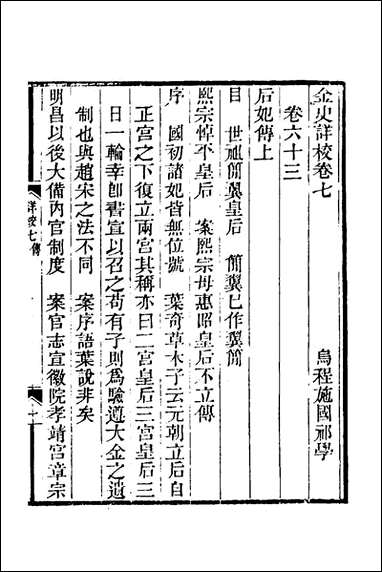 金史詳校卷七
烏程施國祁學
卷六十三
后妃傳上
目　世祖簡翼皇后　簡翼巳作翼簡
熙宗悼平皇后　案熙宗母惠昭皇后不立傳
序　國初諸妃皆無位號　葉奇草木子云元朝立后自
正宮之下復立兩宮其稱亦曰二宮皇后三宮皇后三
日一輪幸卽書宣以召之苟有子則爲驗遵大金之遺
制也與趙宋之法不同　案序語葉說非矣
明昌以後大備內官制度　案官志宣徽院孝靖宮章宗
詳校七傳
一